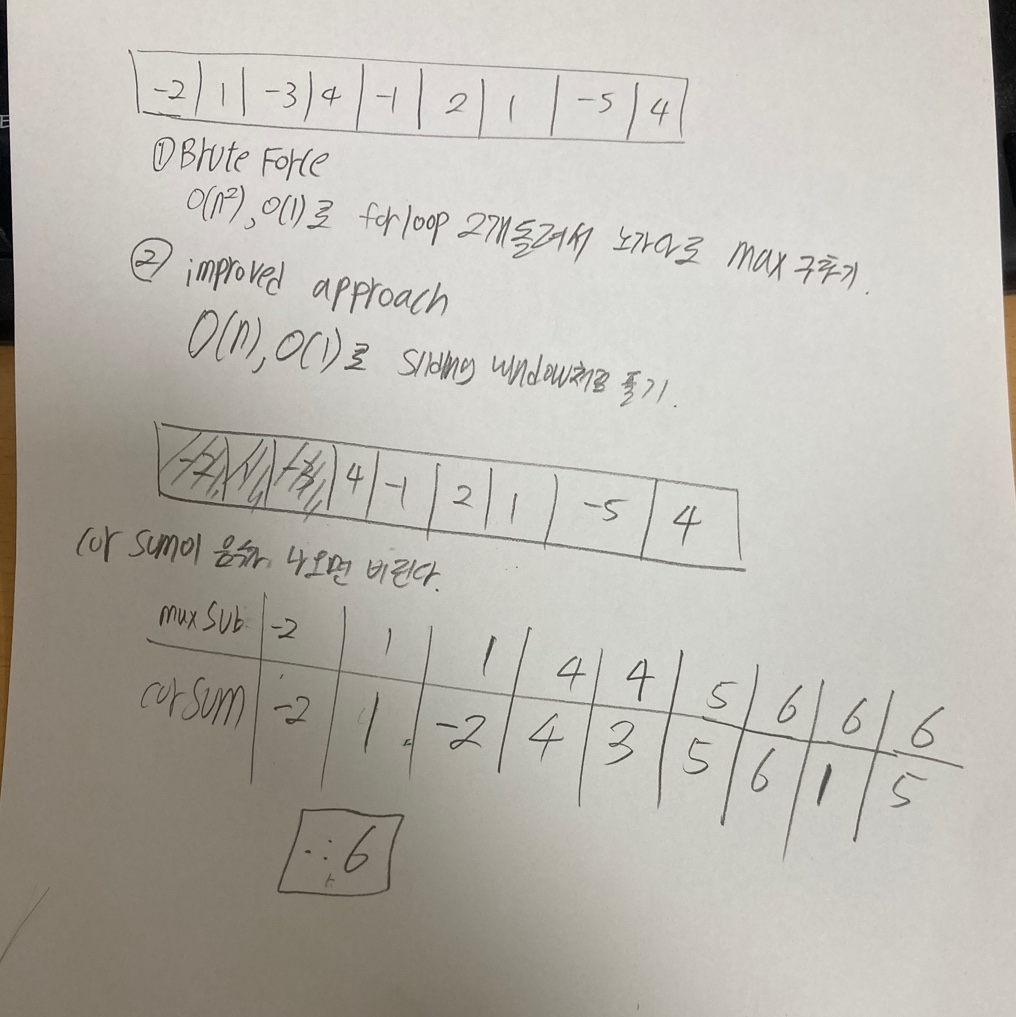 -2 1 -3 4 -1 2 1 -5 4
① Brute Force
O(n²), O(1)로 for loop 2개 돌려서 노가다로 max 구하기.
② improved approach
O(n), O(1)로 sliding window처럼 풀기.
-2 1 -3 4 -1 2 1 -5 4
cur sum이 음수가 나오면 버린다.
max sub -2 1 1 4 4 5 6 6 6
cur sum -2 1 -2 4 3 5 6 1 5
∴ 6